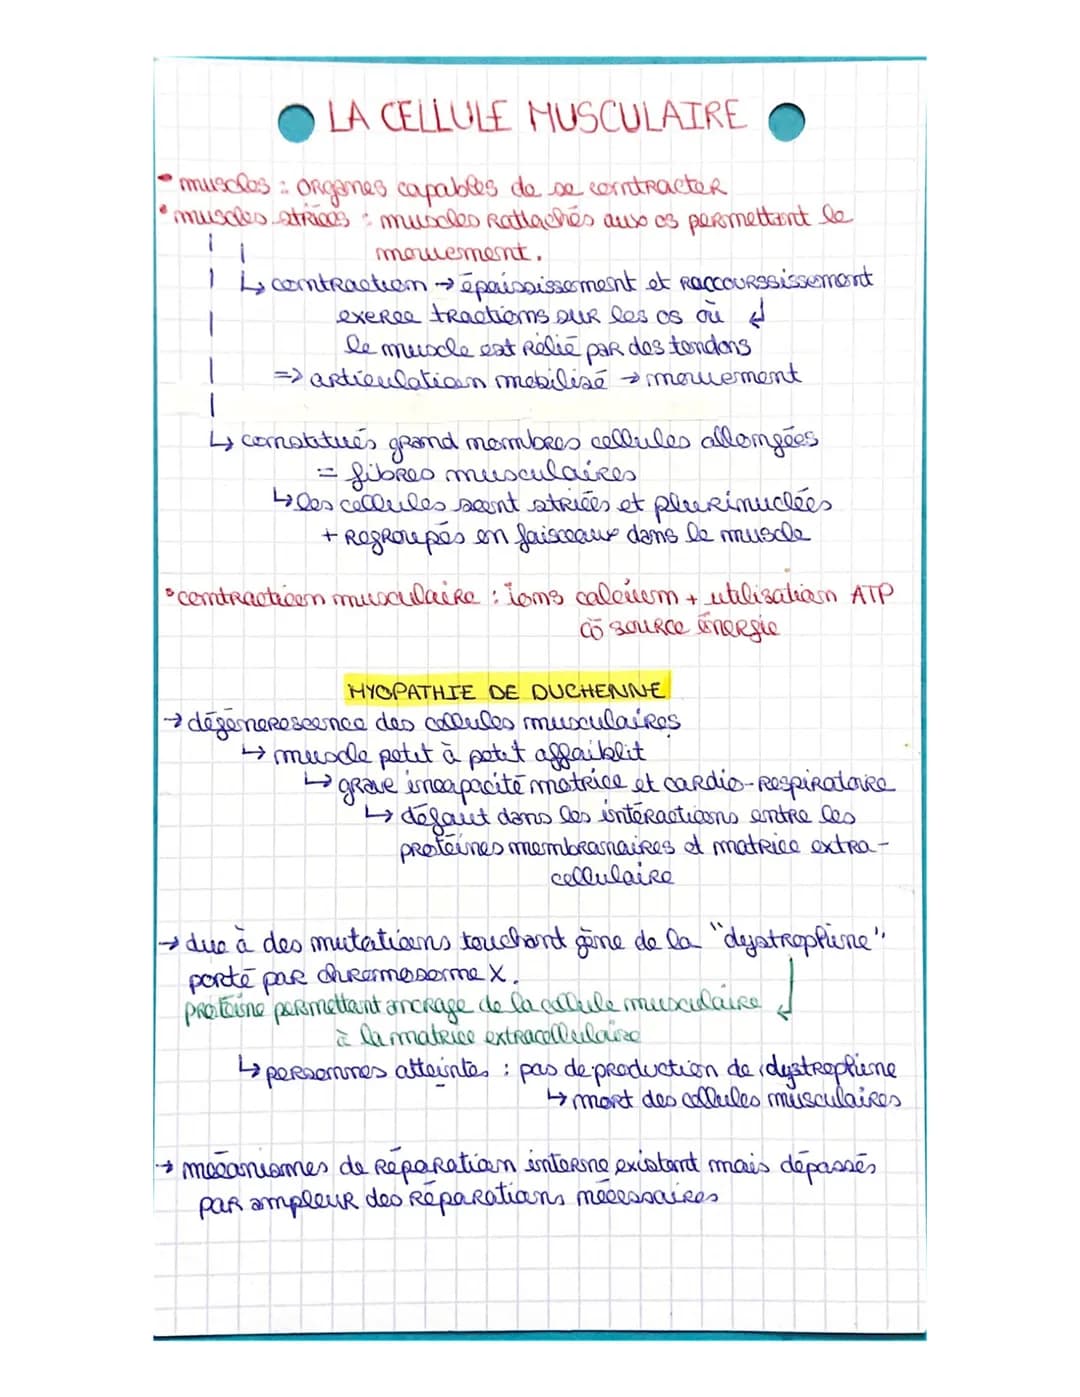 LA CELLULE MUSCULAIRE
• muscles : organes capables de se contracter
• muscles striées : muscles rattachés aux os permettant le
mouvement.
↳ contraction → épaississement et raccourssissement
exerce tractions sur les os où ↲
le muscle est rélié par des tendons
=> articulation mobilisé → mouvement
↳ constitués grand nombres cellules allongées
= fibres musculaires
↳ les cellules sont striées et plurinuclées
+ regroupés en faisceaux dans le muscle
• contraction musculaire : ions calcium + utilisation ATP
cō source énergie
MYOPATHIE DE DUCHENNE
→ dégénerescence des cellules musculaires
↳ muscle petit à petit affaiblit
↳ grave incapacité motrice et cardio-respiratoire
↳ défaut dans les intéractions entre les
protéines membranaires et matrice extra-
cellulaire
→ due à des mutations touchant gène de la "dystrophine"
porté par chromosome X.
protéine permettant ancrage de la cellule musculaire ↲
à la matrice extracellulaire
↳ personnes atteintes : pas de production de dystrophine
↳ mort des cellules musculaires
→ mécanismes de réparation interne existent mais dépassés
par ampleur des réparations nécessaires